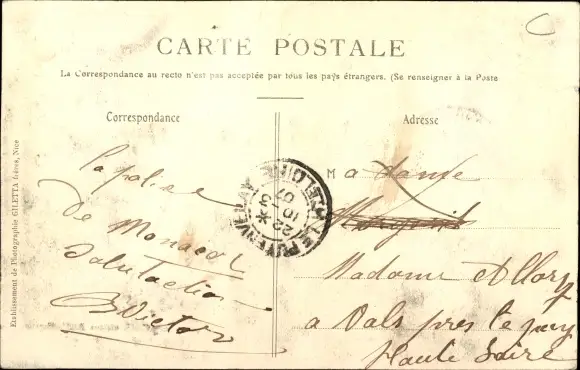 CARTE POSTALE
La Correspondance au recto n'est pas acceptée par tous les pays étrangers. (Se renseigner à la Poste
Correspondance
Adresse
Etablissement de Photographie GILETTA frères, Nice
la police
de Monaco
Salutation
Victor
Madame
Madame Allary
a Vals pres le puy
Haute Loire
LE PUY-EN-VELAY
Hte LOIRE
22 *
10 -3
07